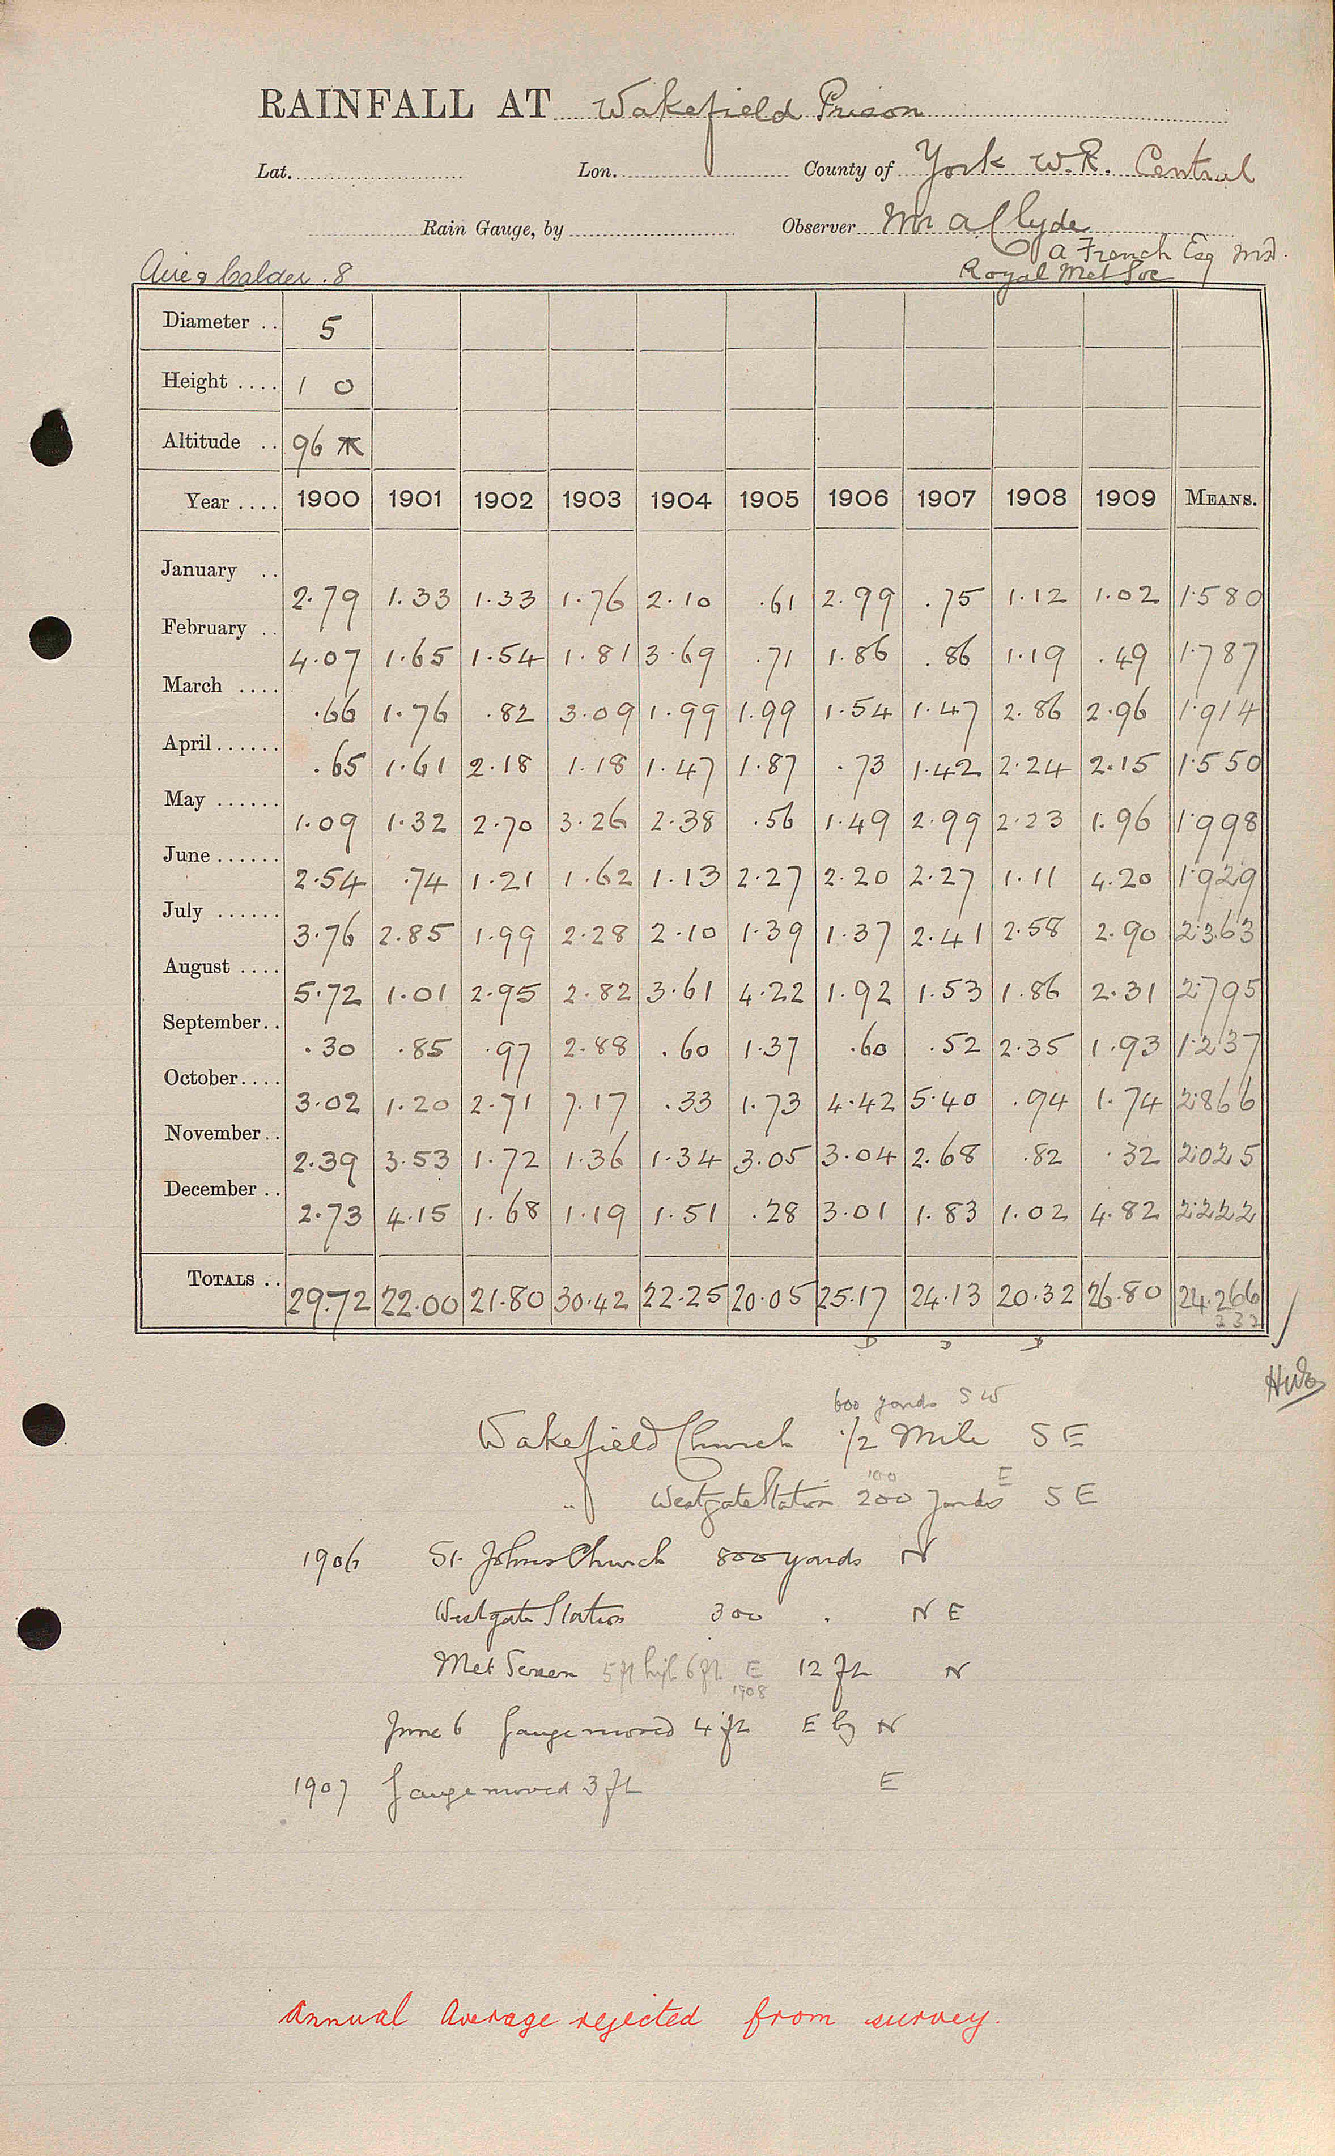 RAINFALL AT Wakefield Prison
Lat. Lon. County of York W.R. Central
Rain Gauge, by Observer Mr A Clyde
A French Esq MD.
Aire & Calder . 8 Royal Met Soc
Diameter .. 5
Height .... 1 0
Altitude .. 96
Year .... 1900 1901 1902 1903 1904 1905 1906 1907 1908 1909 MEANS.
January .. 2.79 1.33 1.33 1.76 2.10 .61 2.99 .75 1.12 1.02 1.580
February .. 4.07 1.65 1.54 1.81 3.69 .71 1.86 .86 1.19 .49 1.787
March .... .66 1.76 .82 3.09 1.99 1.99 1.54 1.47 2.86 2.96 1.914
April ...... .65 1.61 2.18 1.18 1.47 1.87 .73 1.42 2.24 2.15 1.550
May ...... 1.09 1.32 2.70 3.26 2.38 .56 1.49 2.99 2.23 1.96 1.998
June ...... 2.54 .74 1.21 1.62 1.13 2.27 2.20 2.27 1.11 4.20 1.929
July ...... 3.76 2.85 1.99 2.28 2.10 1.39 1.37 2.41 2.58 2.90 2.363
August .... 5.72 1.01 2.95 2.82 3.61 4.22 1.92 1.53 1.86 2.31 2.795
September.. .30 .85 .97 2.88 .60 1.37 .60 .52 2.35 1.93 1.237
October.... 3.02 1.20 2.71 7.17 .33 1.73 4.42 5.40 .94 1.74 2.866
November.. 2.39 3.53 1.72 1.36 1.34 3.05 3.04 2.68 .82 .32 2.025
December .. 2.73 4.15 1.68 1.19 1.51 .28 3.01 1.83 1.02 4.82 2.222
TOTALS .. 29.72 22.00 21.80 30.42 22.25 20.05 25.17 24.13 20.32 26.80 24.266
232
600 yards S W
Wakefield Church 1/2 Mile S E
100 E
" Westgate Station 200 yards S E
1906 St. Johns Church 800 yards N
Westgate Station 300 . N E
Met Screen 5 ft high 6 ft E 12 ft N
1908
June 6 Gauge moved 4 ft E by N
1907 Gauge moved 3 ft E
Annual Average rejected from survey.